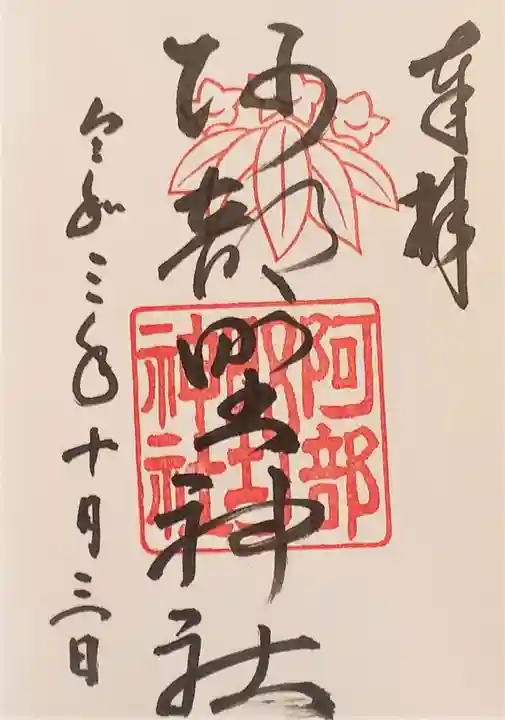 奉拝
阿部野神社
阿部野神社
令和三年十月三日